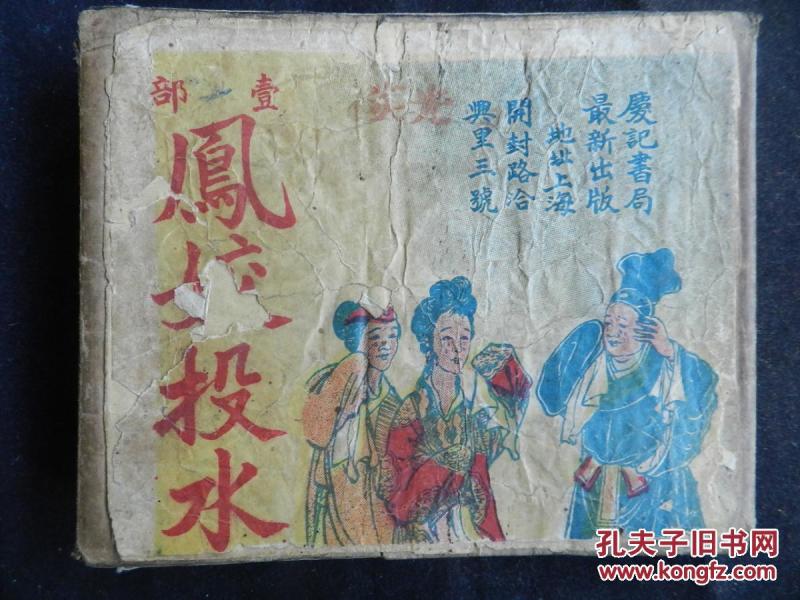 慶記書局
最新出版
地址上海
開封路洽
興里三號
壹部
鳳姣投水
孔夫子旧书网
www.kongfz.com